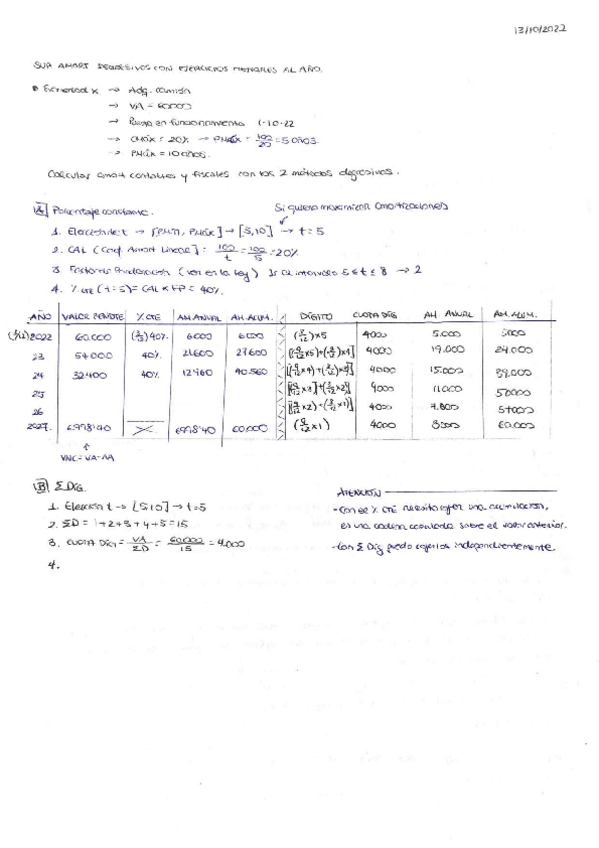 13/10/2022
SUP AMORT DEGRESIVOS CON EJERCICIOS MENORES AL AÑO.
Sociedad X → Adq. camión
→ VA = 60.000
→ Puesta en funcionamiento 1-10-22
→ CMáx = 20% → PMín = 100/20 = 5 años.
→ PMáx = 10 años.
Calcular amort contables y fiscales con los 2 métodos degresivos.
A) Porcentaje constante. Si quiero maximizar amortizaciones
1. Elección de t → [PMín, PMáx] → [5,10] → t = 5
2. CAL (Coef. Amort Lineal) = 100/t = 100/5 = 20%
3. Factores Ponderación (ver en la ley) Is al intervalo 5 ≤ t ≤ 8 → 2
4. % CTE (t=5) = CAL x FP = 40%.
AÑO VALOR PENDTE % CTE AM. ANUAL AM. ACUM. DÍGITO CUOTA DÍG AM ANUAL AM. ACUM.
2022 60.000 (3/12) 40% 6000 6000 (3/12) x5 4000 5.000 5000
23 54000 40% 21600 27600 [(9/12 x5)+(3/12 x4)] 4000 19.000 24.000
24 32400 40% 12960 40.560 [(9/12 x4)+(3/12 x3)] 4000 15.000 39.000
25 [(9/12 x3)+(3/12 x2)] 4000 11.000 50000
26 [(9/12 x2)+(3/12 x1)] 4000 7.000 57000
2027. 6998'40 6998'40 60.000 (9/12 x1) 4000 3000 60.000
VNC = VA-AA
B) Σ Díg.
1. Elección t → [5,10] → t=5
2. ΣD = 1+2+3+4+5 = 15
3. CUOTA Díg = VA/ΣD = 60.000/15 = 4.000
4.
ATENCIÓN
- Con el % cte necesito coger una acumulación,
es una cadena acumulada sobre el valor anterior.
- Con Σ Díg puedo cogerlos independientemente.